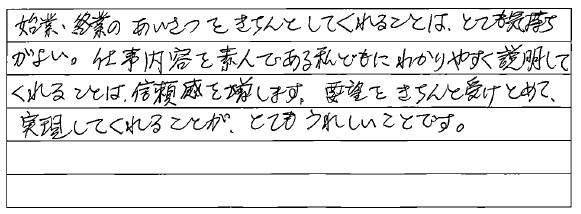 始業・終業のあいさつをきちんとしてくれることは、とても気持ち
がよい。仕事内容を素人である私どもにわかりやすく説明して
くれることは、信頼感を増します。要望をきちんと受けとめて、
実現してくれることが、とてもうれしいことです。